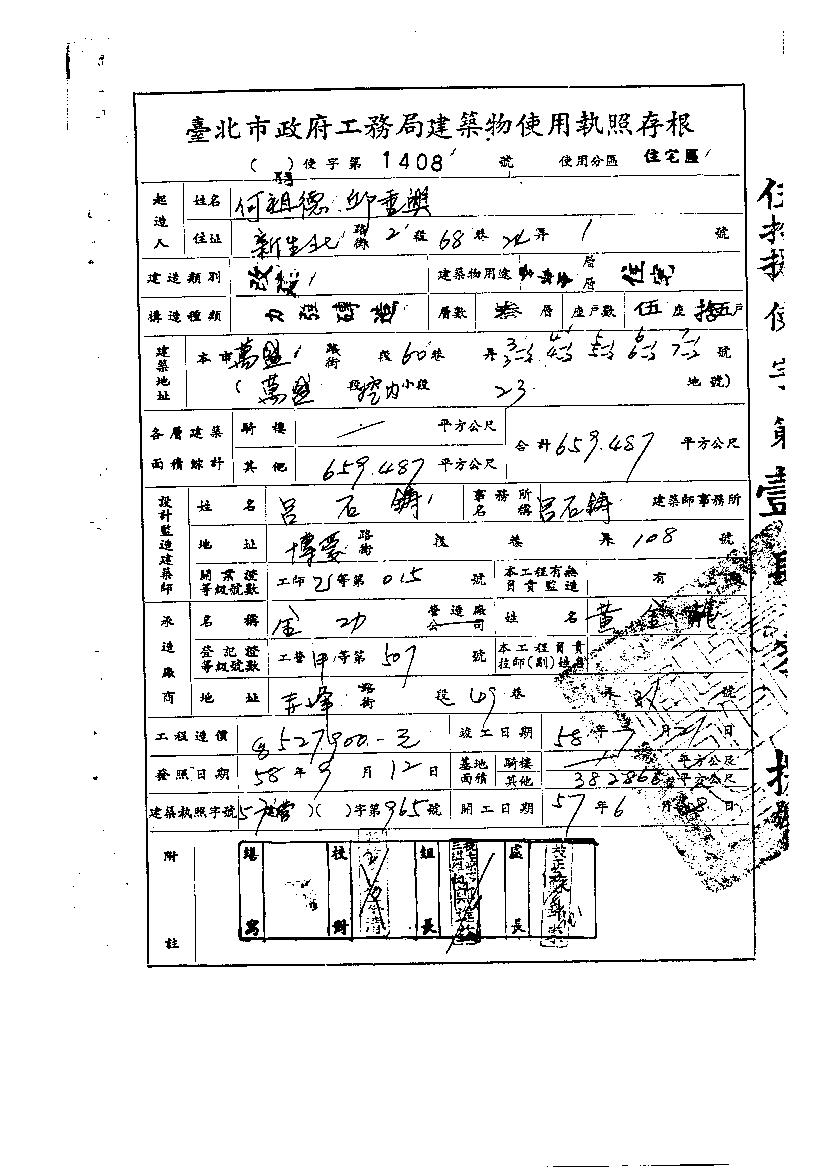 臺北市政府工務局建築物使用執照存根
( ) 使字第 1408 號 使用分區 住宅區
起造人 姓名 何祖德 邱重興
住址 新生北 路街 2 段 68 巷 24 弄 1 號
建造類別 建築物用途 層層 住宅
構造種類 加強磚造 層數 叁 層 座戶數 伍 座 拾五 戶
建築地址 本市 萬盛 路街 段 60 巷 弄 號
( 萬盛 段 小段 23 地號 )
各層建築面積綜計 騎樓 — 平方公尺 合計 659.487 平方公尺
其他 659.487 平方公尺
設計監造建築師 姓名 呂石 事務所名稱 呂石 建築師事務所
地址 博愛 路街 段 巷 弄 108 號
開業證等級號數 工師 等第 015 號 本工程有無負責監造 有
承造廠商 名稱 金功 營造廠公司 姓名 黃金龍
登記證等級號數 工營 甲 等第 507 號 本工程負責技師(副)姓名
地址 赤峰 路街 段 49 巷 弄 號
工程造價 527900.-元 竣工日期 58 年 7 月 21 日
發照日期 58 年 9 月 12 日 基地面積 騎樓 — 平方公尺
其他 平方公尺
建築執照字號 57 ( ) 字第 965 號 開工日期 57 年 6 月 日
附註 繕寫 校對 組長 處長
使字第壹